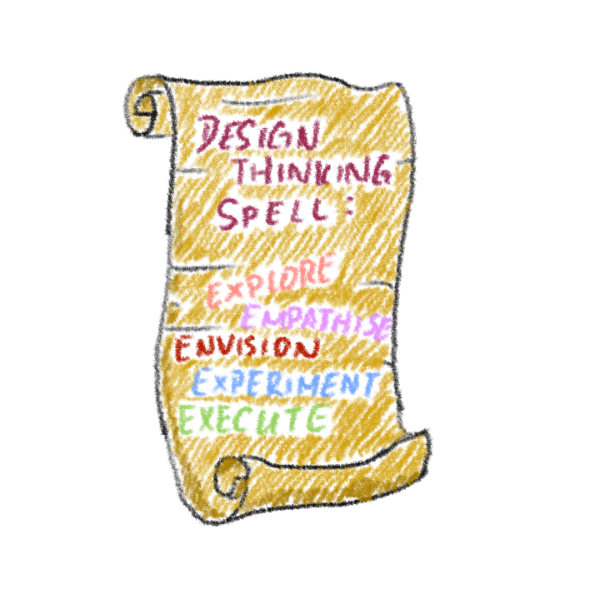 DESIGN
THINKING
SPELL:
EXPLORE
EMPATHISE
ENVISION
EXPERIMENT
EXECUTE